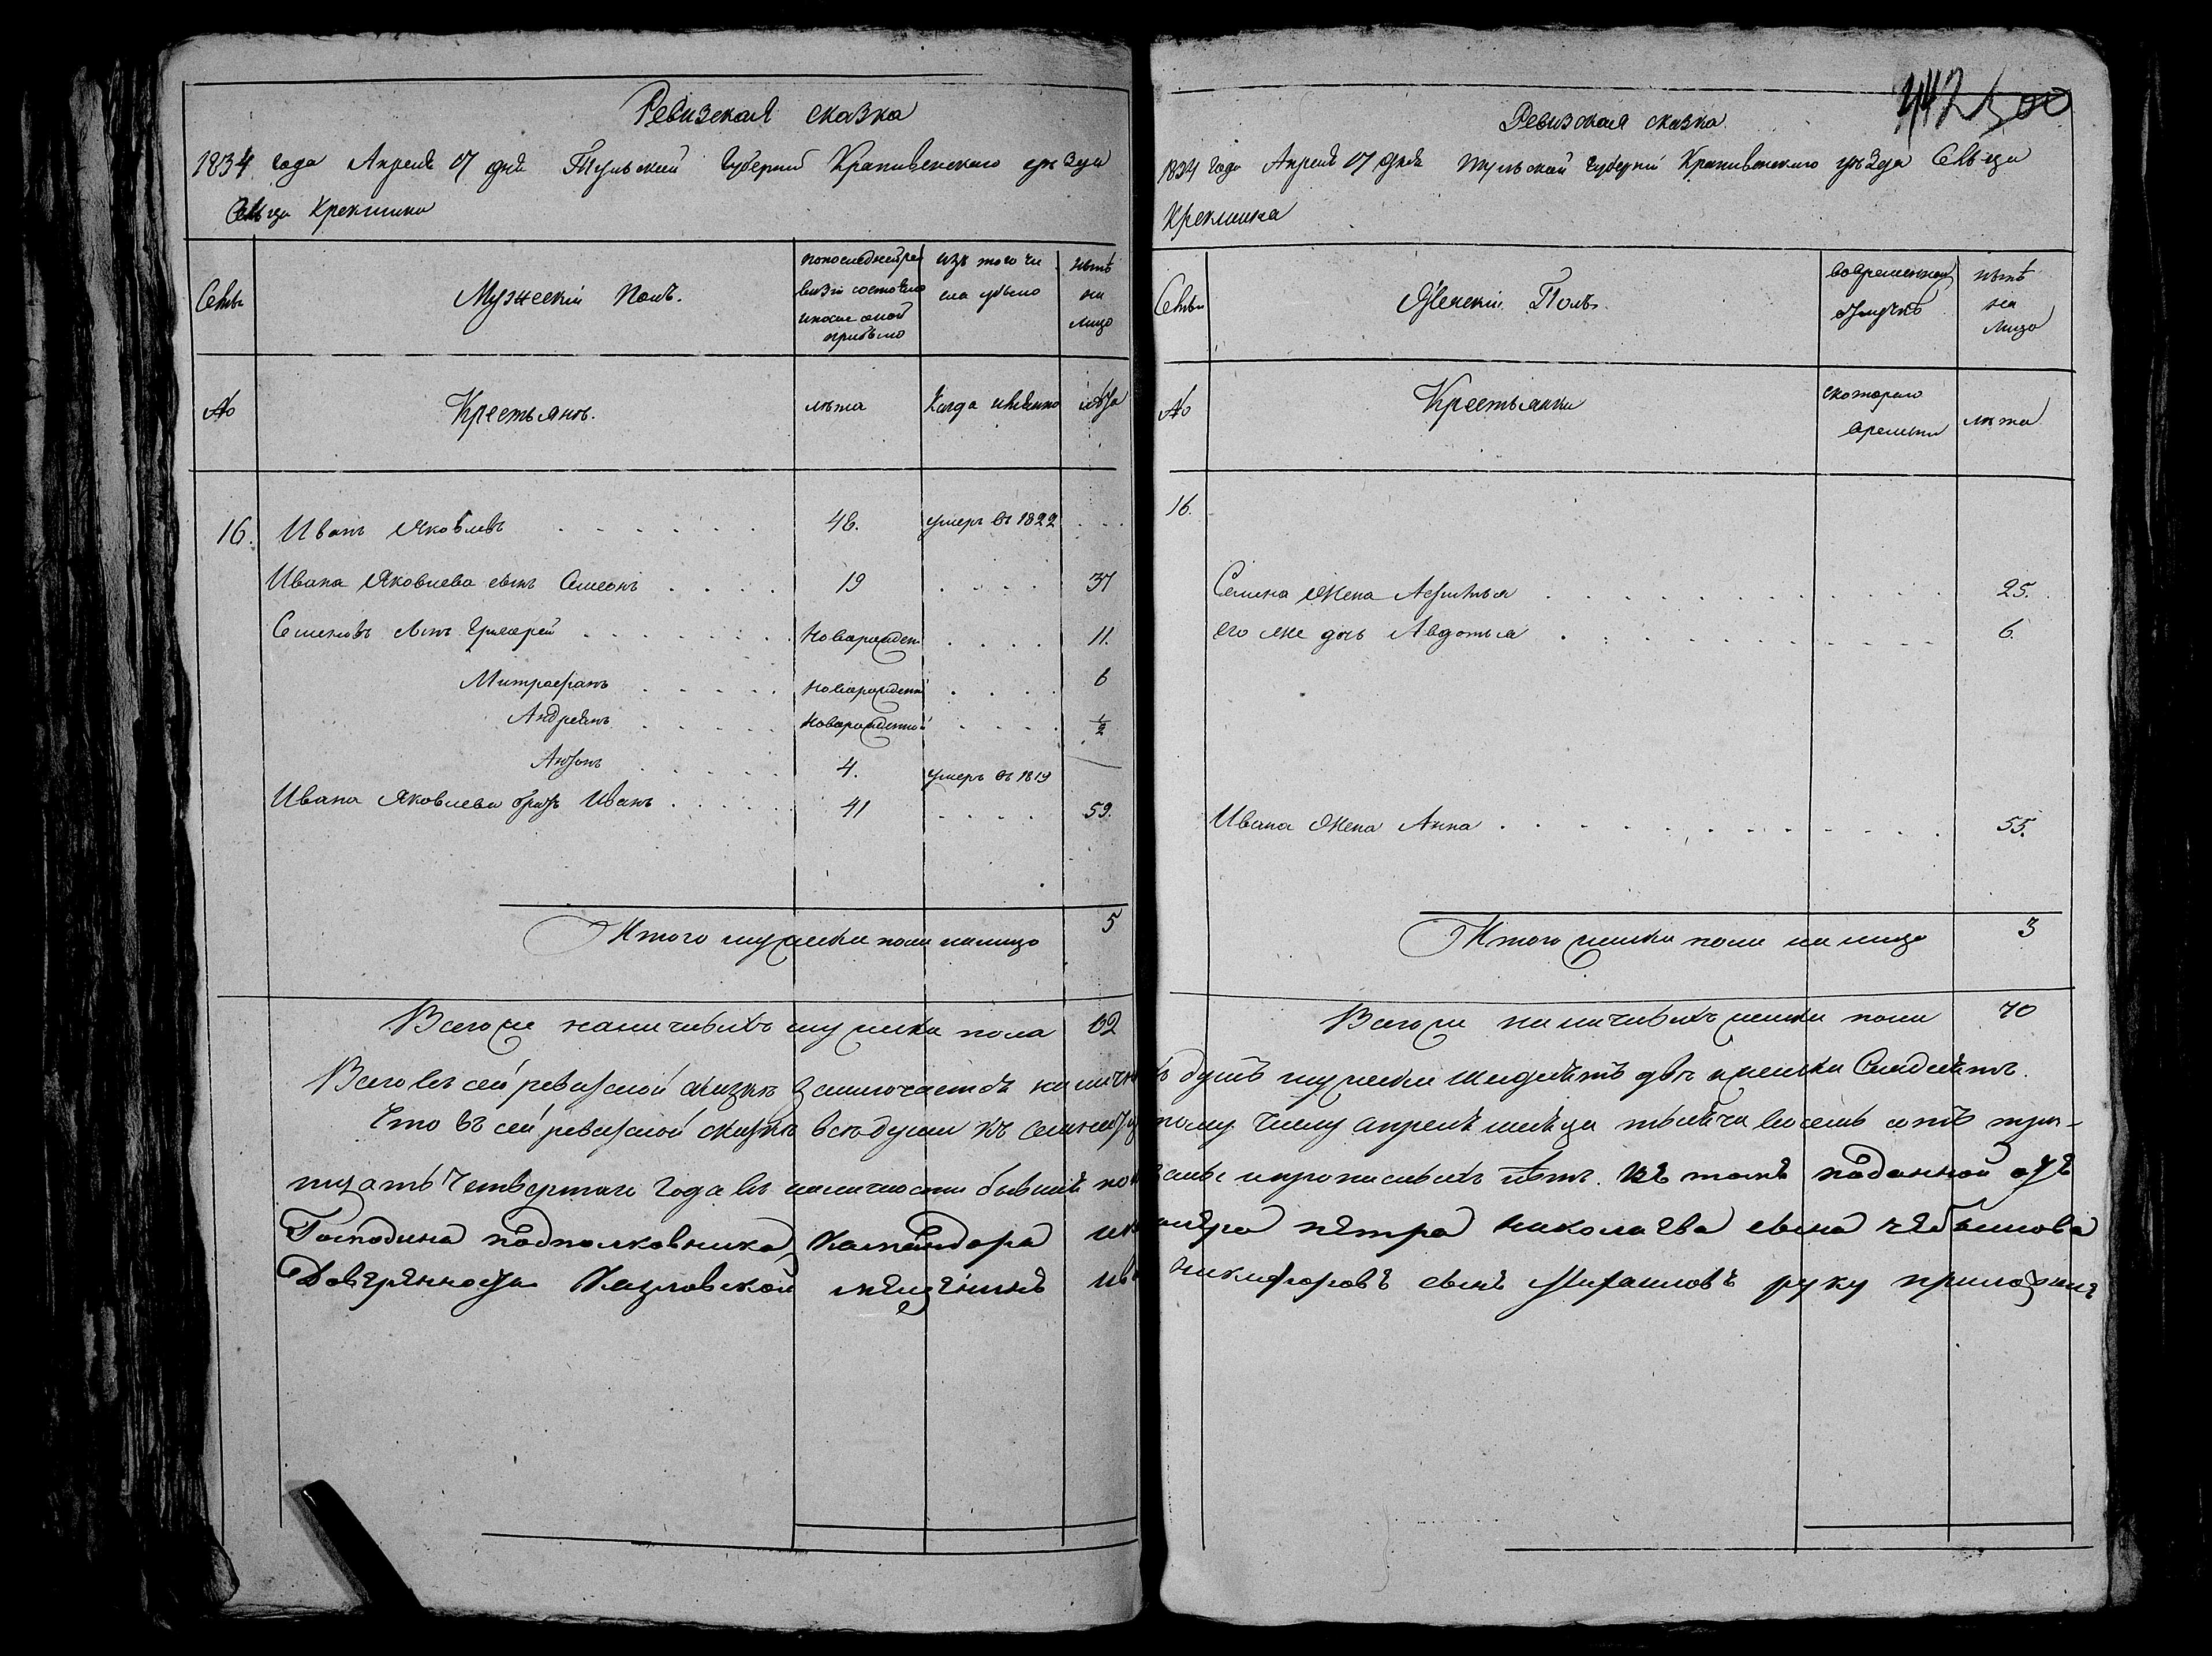 Ревизская сказка
1834 года Апреля 17 дня Тульской Губернии Крапивенского уѣзда
Сельца Крекшина
Семьи
Мужескій Полъ.
попоследней ре
визіи состояло
ипосле оной
прибыло
изъ того чи
сла убыло
нынѣ
на
лицо
№
Крестьянъ.
лѣта
Когда имянно
лѣта
16. Иванъ Яковлевъ 46. умеръ въ 1822
Ивана Яковлева сынъ Семеонъ 19 37
Семеновъ сынъ Григорей новорожден 11.
Митрофанъ новорожденный 6
Андреянъ новорожденный 1/2
Антонъ 4. умеръ въ 1819
Ивана Яковлева братъ Иванъ 41 59.
Итого мужеска пола налицо 5
Всегоже наличныхъ мужеска пола 62
442 500
Ревизская сказка
1834 года Апреля 17 дня Тульской Губерніи Крапивенского уѣзда Сельца
Крекшина
Семьи
Женскій Полъ.
вовременной
отлучкѣ
нынѣ
на
лицо
№
Крестьянки
скотораго
времени
лѣта
16.
Семена жена Афимья 25.
его же дочь Авдотья 6.
Ивана жена Анна 55.
Итого женска пола на лицо 3
Всегоже наличныхъ женска пола 70
Всего въ сей ревизской сказкѣ заключается наличныхъ душъ мужеска шездесятъ двѣ и женска Семдесятъ.
Что въ сей ревизской сказкѣ всѣ души къ семнатцатому числу апреля месеца тысеча восемь сотъ трит-
тцать четвертаго года въ наличности бывшія показаны и прописныхъ нетъ. Въ томъ поданной отъ
Господина подполковника, Командора и кавалера петра николаева сына чебышова
Доверенности Казловской мещенинъ никифоровъ сынъ Михаиловъ руку приложилъ